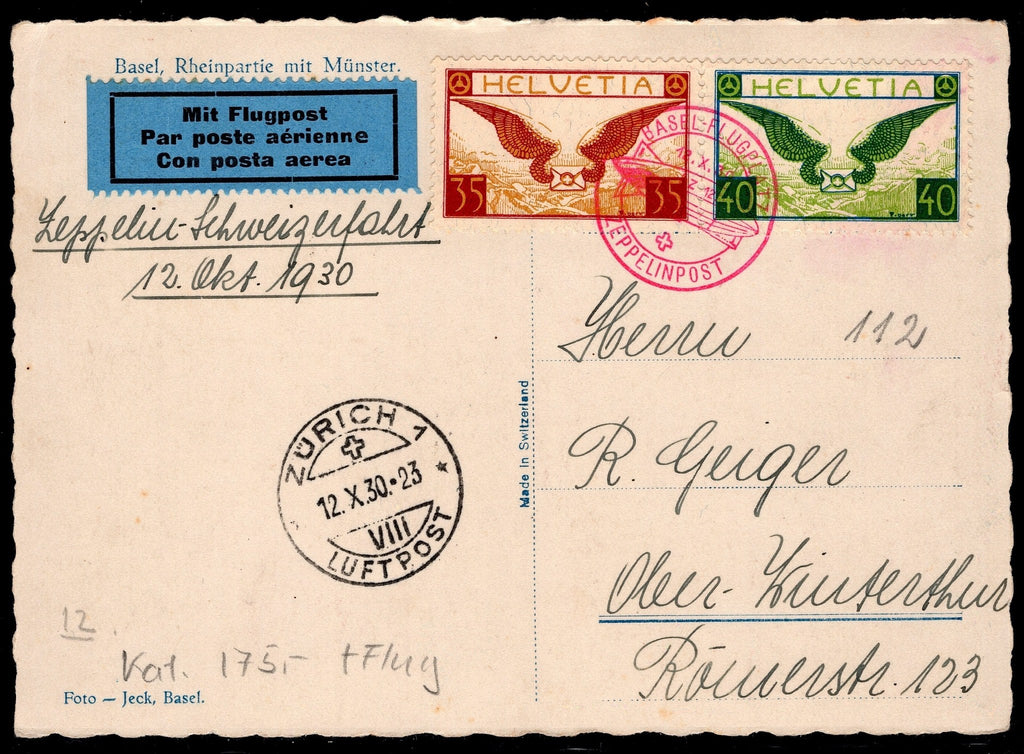 Basel, Rheinpartie mit Münster.
Mit Flugpost
Par poste aérienne
Con posta aerea
HELVETIA
35 35
HELVETIA
40 40
BASEL-FLUGPLATZ
12.X.
ZEPPELINPOST
Zeppelin-Schweizerfahrt
12. Okt. 1930
Herrn 112
R. Geiger
Ober-Winterthur
Römerstr. 123
Made in Switzerland
ZÜRICH 1
12.X.30·23
VIII
LUFTPOST
12.
Kat. 175.- + Flug
Foto — Jeck, Basel.